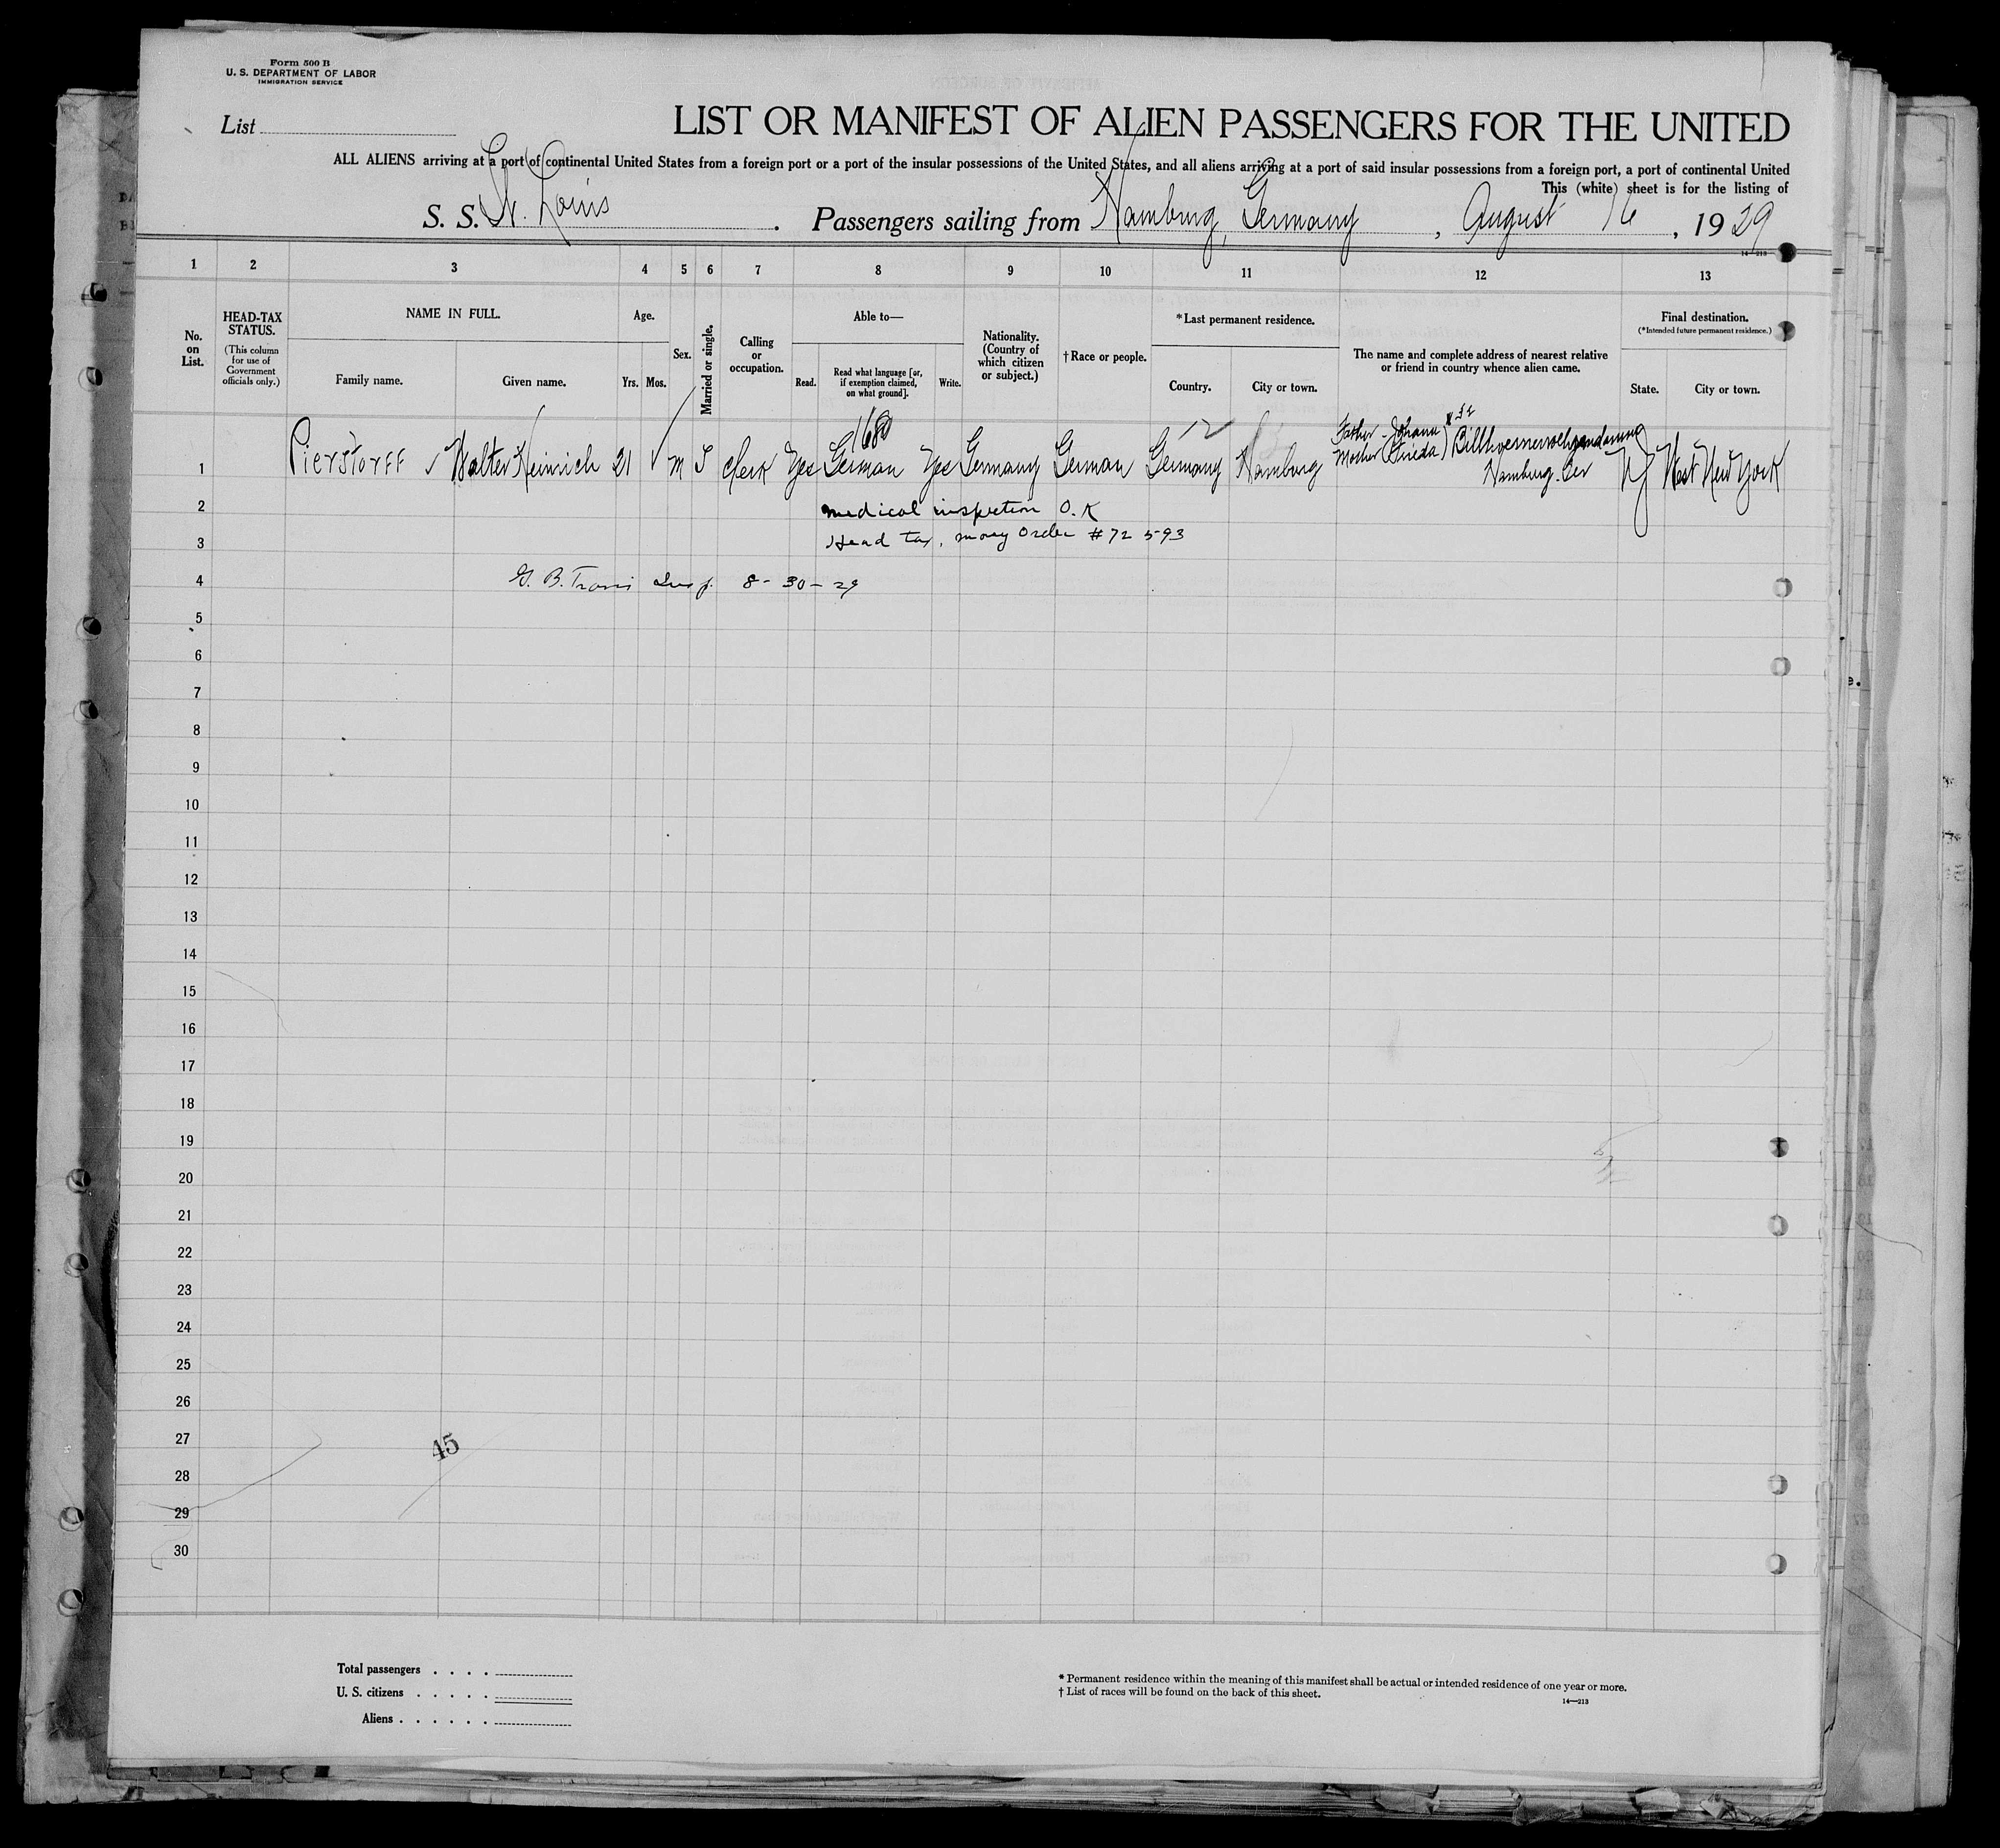 Form 500 B
U. S. DEPARTMENT OF LABOR
IMMIGRATION SERVICE
List
LIST OR MANIFEST OF ALIEN PASSENGERS FOR THE UNITED
ALL ALIENS arriving at a port of continental United States from a foreign port or a port of the insular possessions of the United States, and all aliens arriving at a port of said insular possessions from a foreign port, a port of continental United
This (white) sheet is for the listing of
S. S. St. Louis. Passengers sailing from Hamburg, Germany, August 16, 1929
14—213
1 2 3 4 5 6 7 8 9 10 11 12 13
No. on List.
HEAD-TAX STATUS.
(This column for use of Government officials only.)
NAME IN FULL.
Family name. Given name.
Age.
Yrs. Mos.
Sex.
Married or single.
Calling or occupation.
Able to—
Read. Read what language [or, if exemption claimed, on what ground]. Write.
Nationality. (Country of which citizen or subject.)
†Race or people.
*Last permanent residence.
Country. City or town.
The name and complete address of nearest relative or friend in country whence alien came.
Final destination.
(*Intended future permanent residence.)
State. City or town.
1680 12
Father - Johann
Mother (Frieda)
1 Pierstorff Walter Heinrich 21 m S Clerk Yes German Yes Germany German Germany Hamburg Hamburg. Ger NJ West New York
2 medical inspection O.K
3 Head tax, money Order #72593
4 G. B. Travis Insp. 8-30-29
5
6
7
8
9
10
11
12
13
14
15
16
17
18
19
20
21
22
23
24
25
26
27
45
28
29
30
Total passengers . . . .
U. S. citizens . . . . .
Aliens . . . . . .
* Permanent residence within the meaning of this manifest shall be actual or intended residence of one year or more.
† List of races will be found on the back of this sheet.
14—213